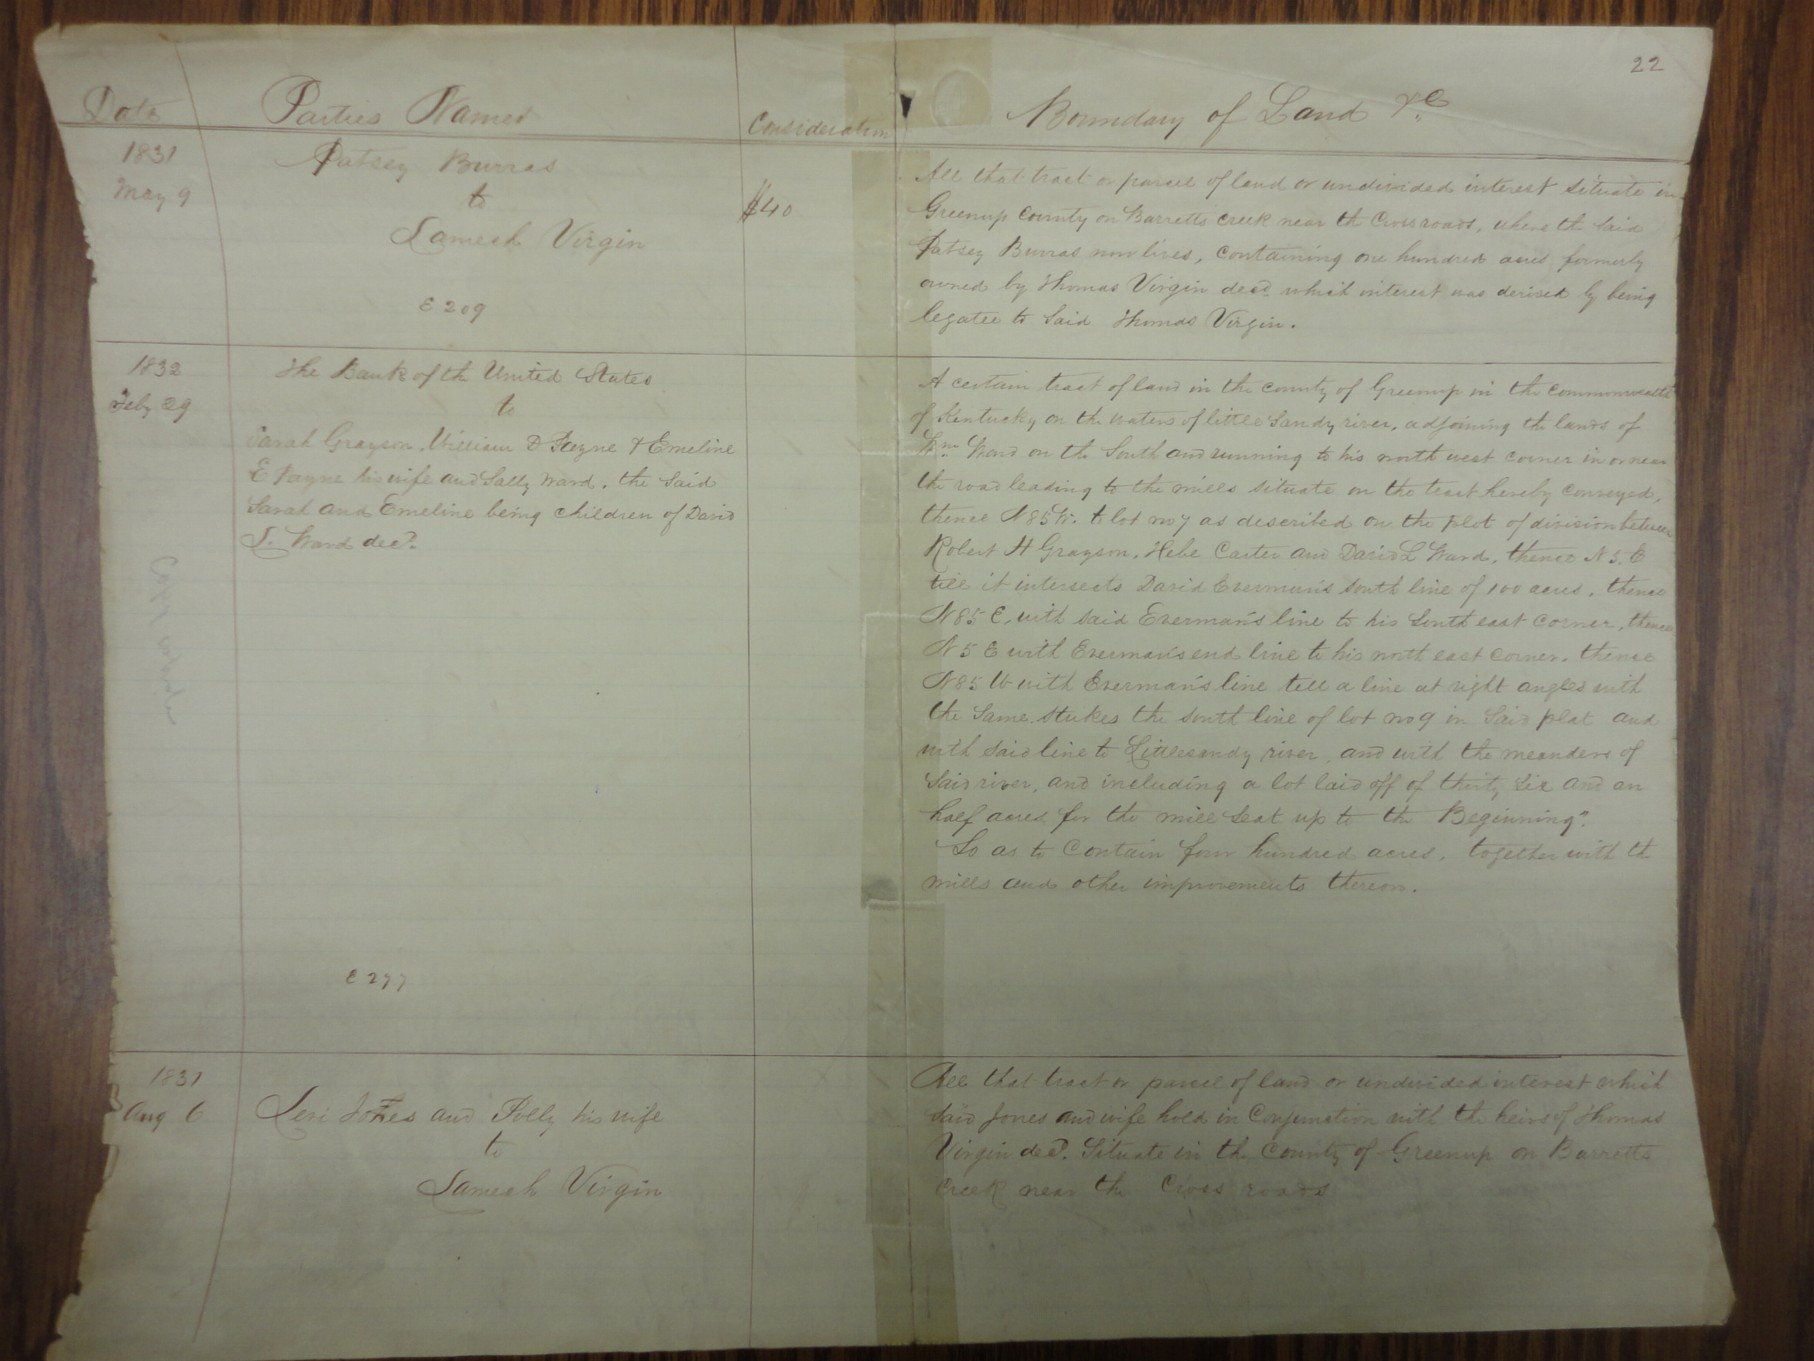 22
Date
Parties Names
Consideration
Boundary of Land &c.
1831
May 9
Patsey Burras
to
Lamech Virgin
E 209
$40
All that tract or parcel of land or undivided interest situate in
Greenup County on Barretts Creek near the Crossroads, where the said
Patsey Burras now lives, Containing one hundred acres formerly
owned by Thomas Virgin decd. which interest was derived by being
legatee to said Thomas Virgin.
1832
Feby 29
The Bank of the United States
to
Sarah Grayson, William D Payne & Emeline
E Payne his wife and Sally Ward. the said
Sarah and Emeline being children of David
L. Ward decd.
E 277
A certain tract of land in the county of Greenup in the commonwealth
of Kentucky on the waters of little Sandy river, adjoining the lands of
Wm Ward on the South and running to his north west corner in or near
the road leading to the mills situate on the tract hereby conveyed,
thence N 85 W. to lot no 7 as described on the plot of division between
Robert H Grayson, Hebe Carter and David L Ward, thence N 5. E
till it intersects David Everman's south line of 100 acres, thence
N 85 E, with said Everman's line to his South east corner, thence
N 5 E with Everman's end line to his north east corner. thence
N 85 W with Everman's line till a line at right angles with
the same, strikes the south line of lot no 9 in said plat and
with said line to Littlesandy river, and with the meanders of
said river, and including a lot laid off of thirty six and an
half acres for the mill seat up to the Beginning".
So as to Contain four hundred acres, together with th
mills and other improvements thereon.
1831
Aug 6
Levi Jones and Polly his wife
to
Lamech Virgin
All that tract or parcel of land or undivided interest which
said Jones and wife hold in Conjunction with the heirs of Thomas
Virgin decd. Situate in the County of Greenup on Barretts
Creek near the Cross roads